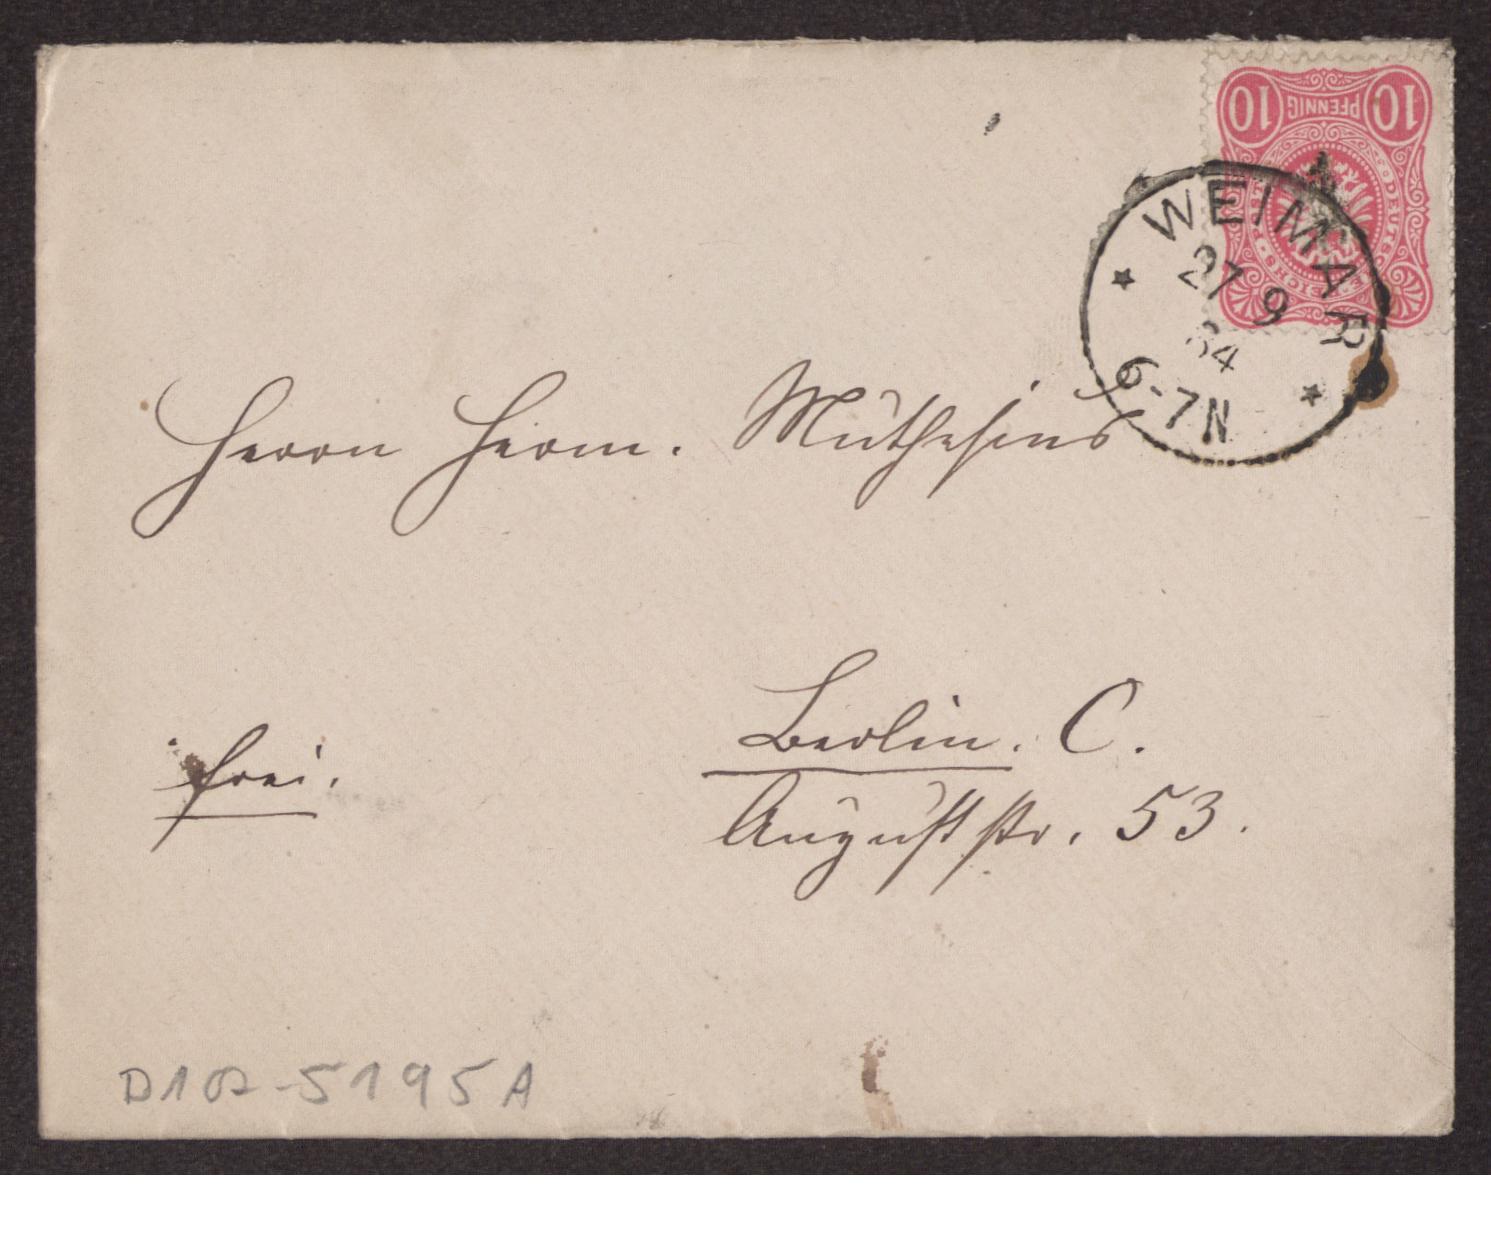 10 PFENNIG 10
WEIMAR
27 9
84
6-7N
Herrn Herm. Muthesius
Berlin. C.
frei.
Auguststr. 53.
D102-5195A